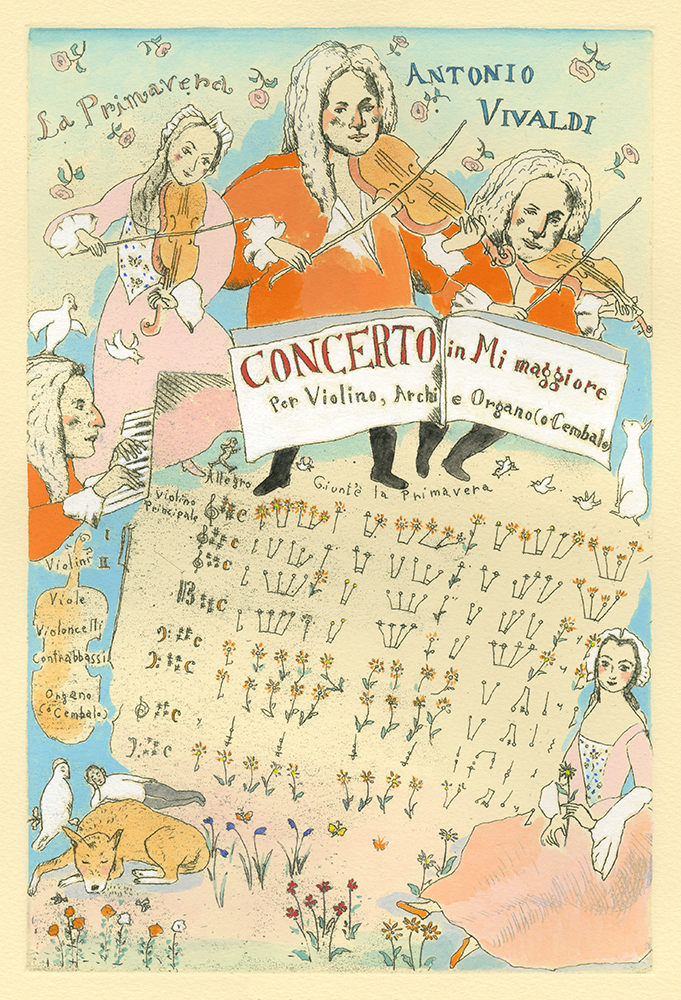 La Primavera
ANTONIO
VIVALDI
CONCERTO in Mi maggiore
Per Violino, Archi e Organo (o Cembalo)
Allegro
Giunt'è la Primavera
Violino
Principale
Violini I
II
Viole
Violoncelli
Contrabbassi
Organo
(o Cembalo)